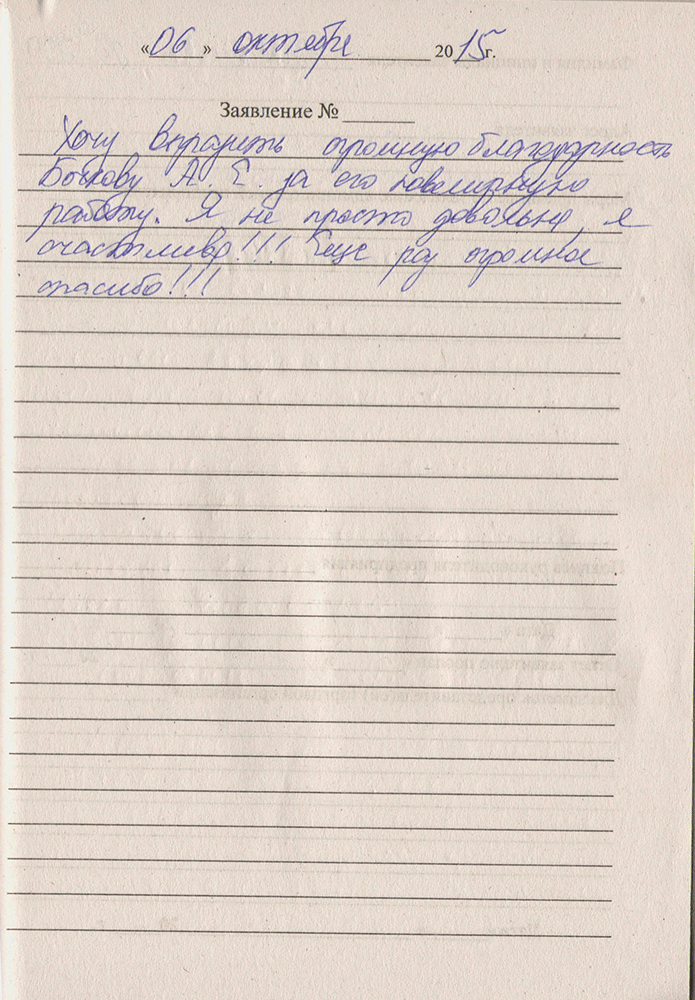 «06» октября 2015г.
Заявление №
Хочу выразить огромную благодарность
Бочкову А. Е. за его ювелирную
работу. Я не просто довольна, я
счастлива!!! Еще раз огромное
спасибо!!!